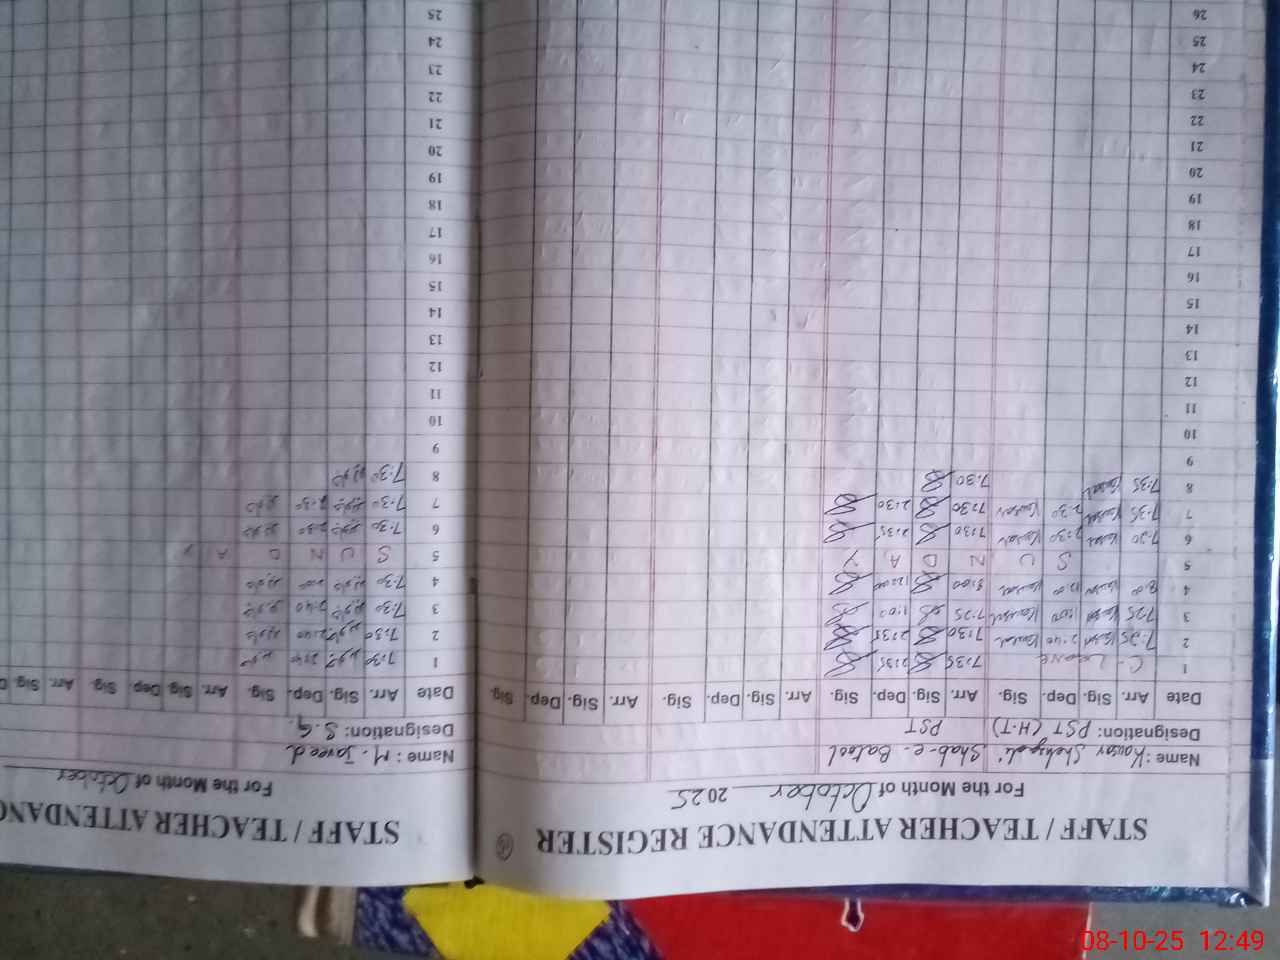 STAFF / TEACHER ATTENDANCE REGISTER
For the Month of October 2025
Name: Kousar Shehzadi Shab-e-Batool
Designation: PST (H-T) PST
Date Arr. Sig. Dep. Sig. Arr. Sig. Dep. Sig. Arr. Sig. Dep. Sig. Arr. Sig. Dep. Sig.
1 C-Leave 7:35 2:35
2 7:25 Kousar 2:40 Kousar 7:30 2:35
3 7:25 Kousar 1:00 Kousar 7:25 1:00
4 8:00 Kousar 12:00 Kousar 8:00 12:00
5 S U N D A Y
6 7:30 Kousar 2:30 Kousar 7:30 2:35
7 7:35 Kousar 2:30 Kousar 7:30 2:30
8 7:35 Kousar 7:30
9
10
11
12
13
14
15
16
17
18
19
20
21
22
23
24
25
26
STAFF / TEACHER ATTENDANC
For the Month of October
Name: M. Javeed
Designation: S.G.
Date Arr. Sig. Dep. Sig. Arr. Sig. Dep. Sig. Arr. Sig. D
1 7:30 2:40
2 7:30 2:40
3 7:30 2:40
4 7:30
5 S U N D A Y
6 7:30 2:30
7 7:30 2:30
8 7:30
9
10
11
12
13
14
15
16
17
18
19
20
21
22
23
24
25
08-10-25 12:49